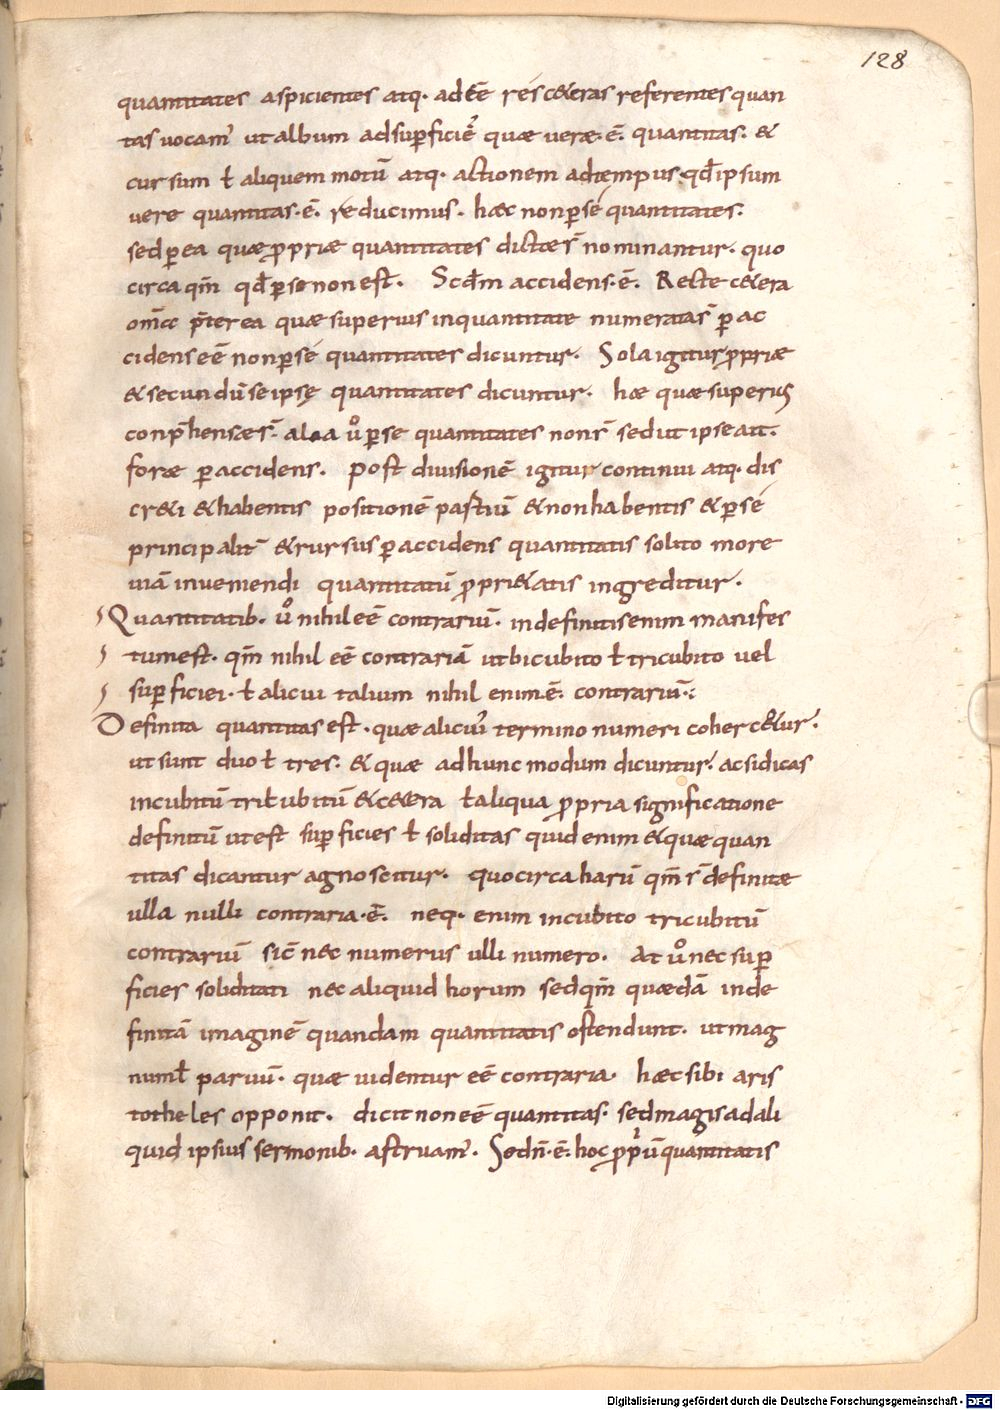 128
quantitates aspicientes atq· ad eē res cęteras referentes quan
tas vocam̃ ut album ad sup̱ficiē quae verae·ē· quantitas· &
cursum ł aliquem motū atq· actionem ad tempus·qđ ipsum
vere quantitas·ē· reducimus· haec non p̱ se quantitates·
sed p̱ ea quae p̱priae quantitates dictae s̄ nominantur· quo
circa qm̄ qđ p̱ se non est· Scđm accidens·ē· Recte c&era
om̄a p̄ter ea quae superius in quantitate numeratas̄ p̱ ac
cidens eē non p̱ se quantitates dicuntur· Sola igitur p̱priae
& secundū se ipsę quantitates dicuntur· hae quae superius
conp̄hensae s̄· alia ů p̱ se quantitates non s̄ sed ut ipse ait·
forae p̱ accidens· post divisionē igitur continui atq· dis
cr&i & habentis positionē pastiū & non habentis & p̱ se
principalit̄ & rursus p̱ accidens quantitatis solito more
viam inveniendi quantitatū p̱pri&atis ingreditur·
Quantitatib· ů nihil eē contrariū· in definitis enim manifes
tum est· qm̄ nihil eē contrariū ut bicubito ł tricubito vel
sup̱ficiei· ł alicui talium nihil enim ē· contrariū·:
Definita quantitas est· quae alicui' termino numeri coherc&ur·
ut sunt duo ł tres· & quae ad hunc modum dicuntur· ac si dicas
in cubitū tricubitū & c&era ł aliqua p̱pria significatione
definitū ut est sup̱ficies ł soliditas quid enim & quae quan
titas dicantur agnoscitur· quocirca harū qm̄ s̄ definitae
ulla nulli contraria·ē· neq· enim in cubito tricubitū
contrariū sic̄ nec numerus ulli numero· At ů nec sup̱
ficies soliditati nec aliquid horum sed qm̄ quaedā inde
finitā imaginē quandam quantitatis ostendunt· ut mag
num ł parvū· quae videntur eē contraria· haec sibi aris
totheles opponit· dicit non eē quantitas· sed magis ad ali
quid ipsius sermonib· astruam̃· Sed n̄·ē· hoc p̱priū quantitatis
Digitalisierung gefördert durch die Deutsche Forschungsgemeinschaft · DFG